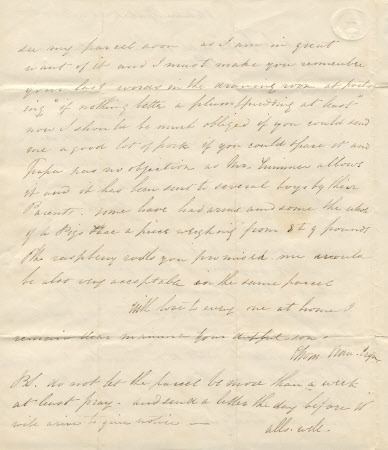 see my parcel soon as I am in great
want of it and I must make you remember
your last words in the drawing room at parting
"if nothing better a plumpudding at least
now I should be much obliged if you could send
me a good lot of pork if you could spare it and
Papa has no objection as Mr. allows
it and it has been sent to several boys by their
Parents. some have had arms and some the whole
of a Pigs a piece weighing from 8 to 9 pounds
The raspberry rolls you promised me would
be also very acceptable in the same parcel
With love to every one at home I
remain dear mamma your affect. son
Thos. Wm.
P.S. do not let the parcel be more than a week
at least pray. and send a letter the day before it
will arrive to give notice —
alls well.